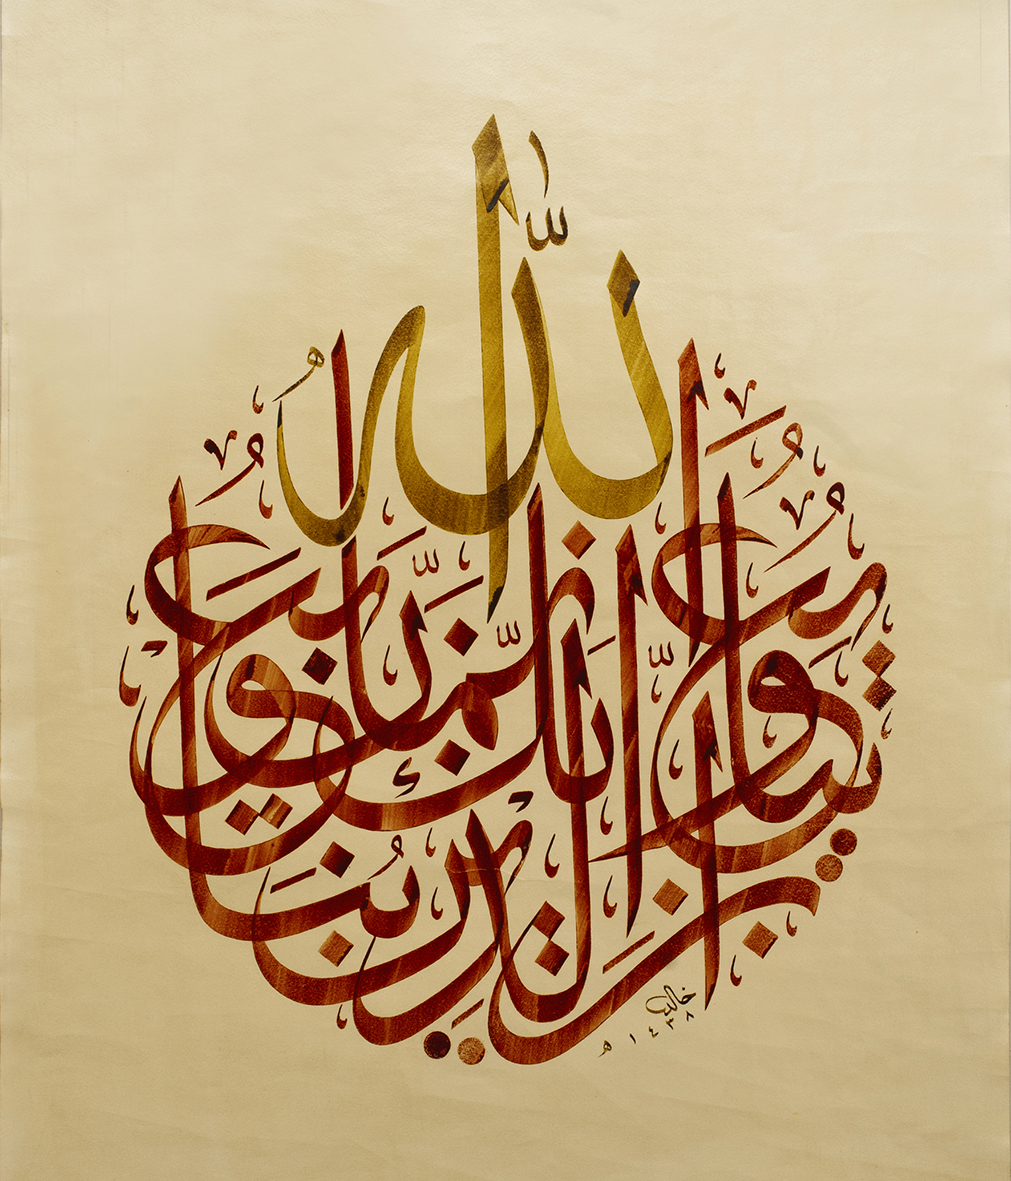 إِنَّ الَّذِينَ يُبَايِعُونَكَ إِنَّمَا يُبَايِعُونَ اللَّهَ
خالد
١٤٣٨ هـ